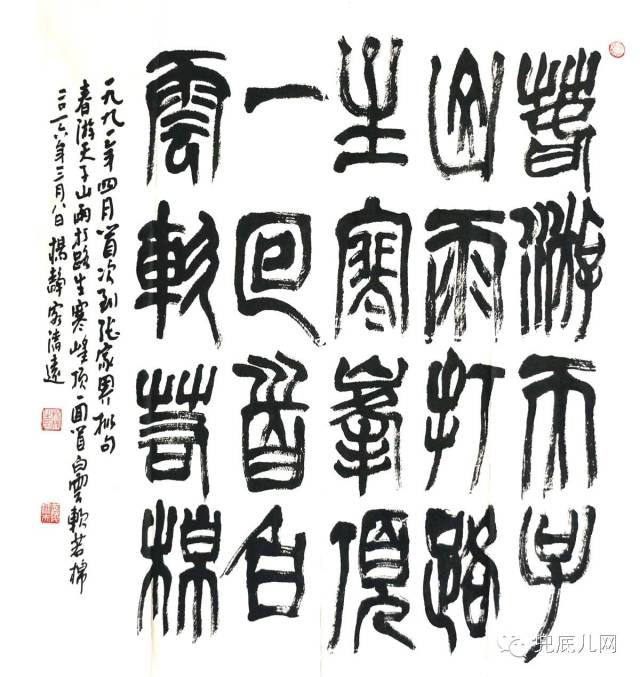 春游天子
山雨打路
生寒峯頂
一回首白
雲軟若棉
一九九一年四月首次到张家界拟句
春游天子山雨打路生寒峰顶一回首白雲軟若棉
二〇一六年三月八日楊靜客清遠
兜底儿网